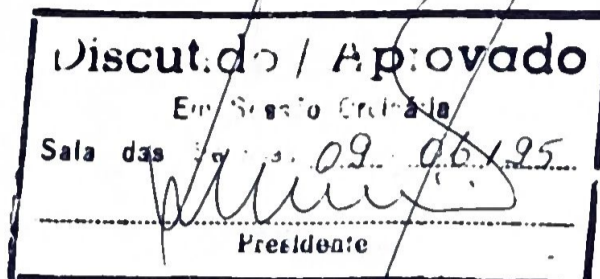 Discutido / Aprovado
Em Sessão Ordinária
Sala das 09 06/95
Presidente